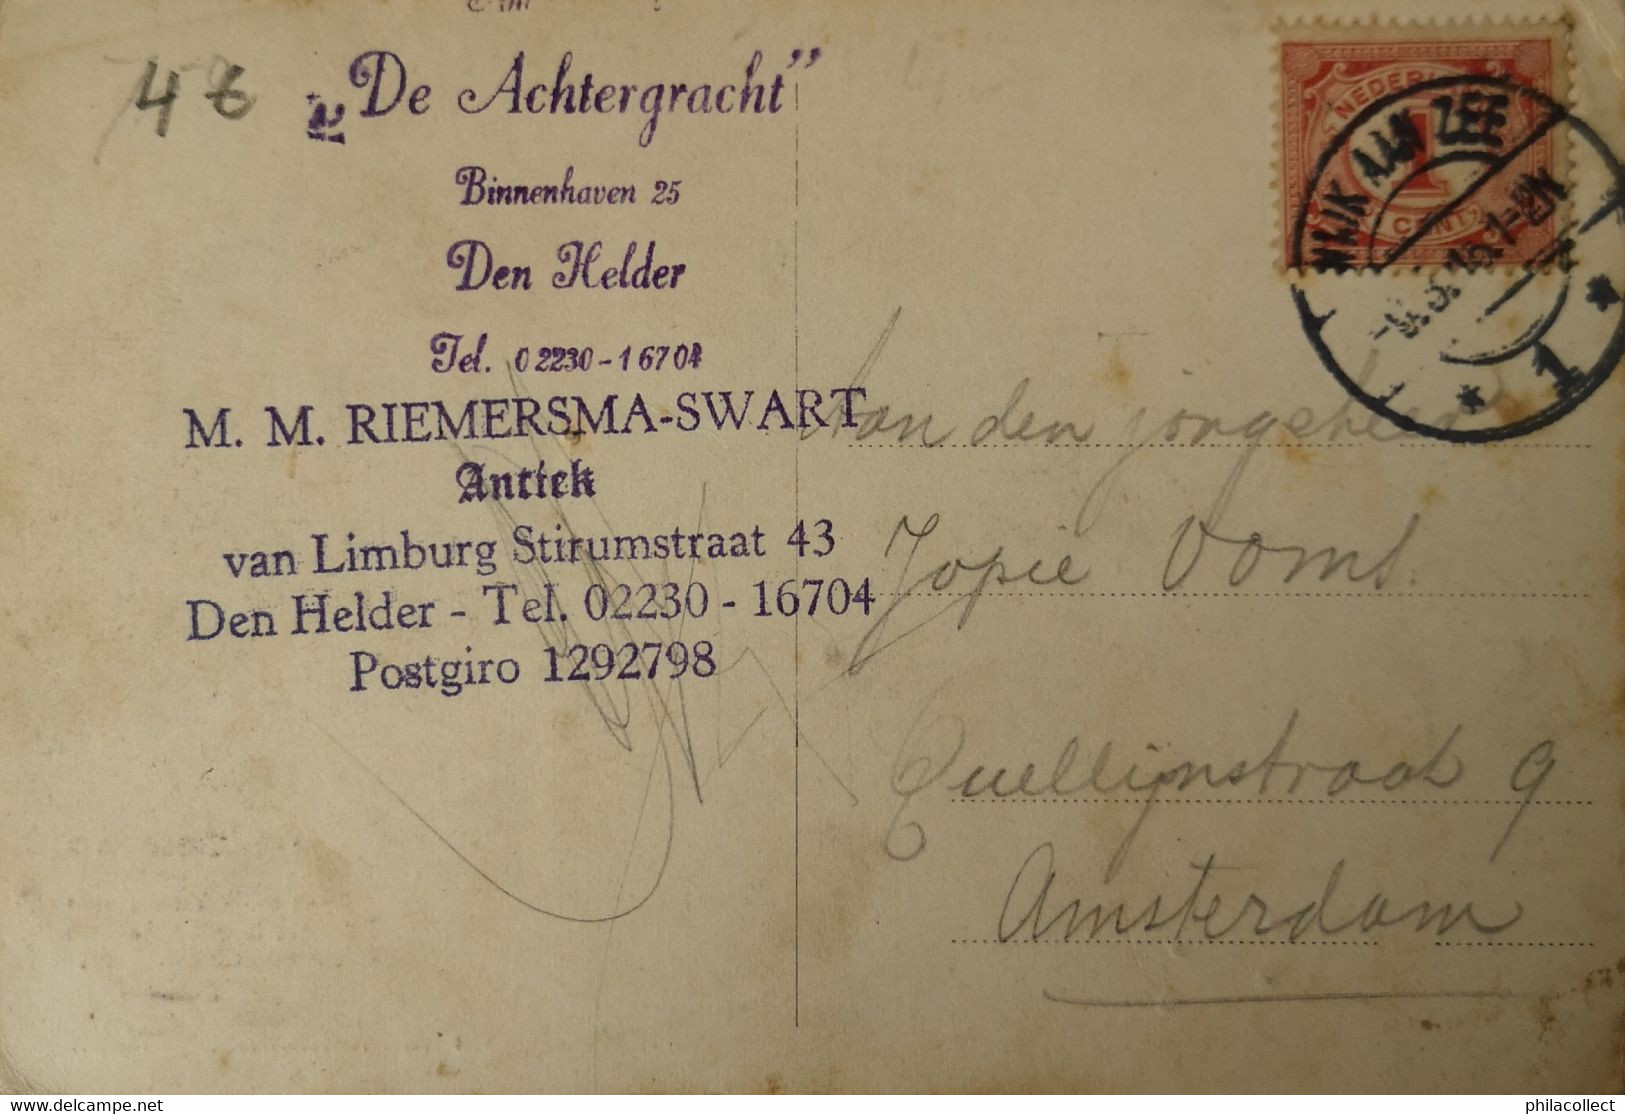 48
„De Achtergracht”
Binnenhaven 25
Den Helder
Tel. 02230-16704
M. M. RIEMERSMA-SWART
Antiek
van Limburg Stirumstraat 43
Den Helder - Tel. 02230 - 16704
Postgiro 1292798
NEDERL
1
CENT
WIJK AAN ZEE
1
Aan den jongeheer
Jopie
Quellijnstraat 9
Amsterdam
philacollect